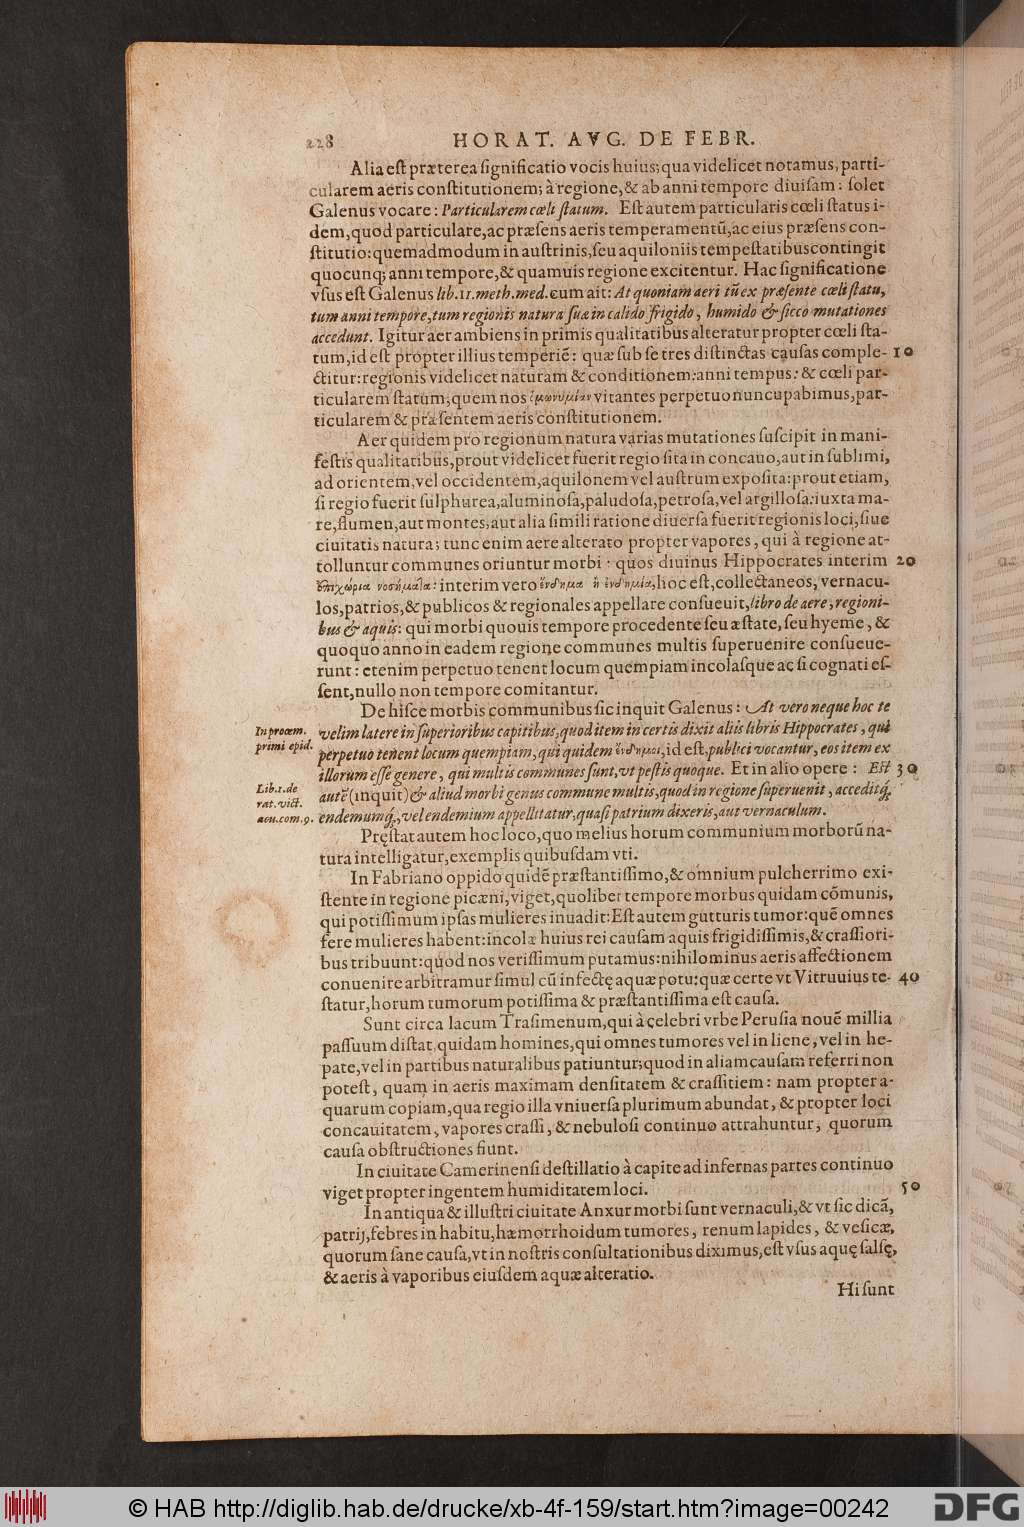 228 HORAT. AVG. DE FEBR.
Alia est præterea significatio vocis huius; qua videlicet notamus, parti-
cularem aeris constitutionem; à regione, & ab anni tempore diuisam: solet
Galenus vocare: Particularem cœli statum. Est autem particularis cœli status i-
dem, quod particulare, ac præsens aeris temperamentũ, ac eius præsens con-
stitutio: quemadmodum in austrinis, seu aquiloniis tempestatibus contingit
quocunq; anni tempore, & quamuis regione excitentur. Hac significatione
vsus est Galenus lib. 11. meth. med. cum ait: At quoniam aeri tũ ex præsente cœli statu,
tum anni tempore, tum regionis natura suæ in calido frigido, humido & sicco mutationes
accedunt. Igitur aer ambiens in primis qualitatibus alteratur propter cœli sta-
tum, id est propter illius temperiẽ: quæ sub se tres distinctas causas comple- 10
ctitur: regionis videlicet naturam & conditionem: anni tempus: & cœli par-
ticularem statum; quem nos ὁμωνυμίαν vitantes perpetuo nuncupabimus, par-
ticularem & præsentem aeris constitutionem.
Aer quidem pro regionum natura varias mutationes suscipit in mani-
festis qualitatibus, prout videlicet fuerit regio sita in concauo, aut in sublimi,
ad orientem, vel occidentem, aquilonem vel austrum exposita: prout etiam,
si regio fuerit sulphurea, aluminosa, paludosa, petrosa, vel argillosa: iuxta ma-
re, flumen, aut montes, aut alia simili ratione diuersa fuerit regionis loci, siue
ciuitatis natura; tunc enim aere alterato propter vapores, qui à regione at-
tolluntur communes oriuntur morbi: quos diuinus Hippocrates interim 20
ἐπιχώρια νοσήματα: interim vero ἔνδημα ἢ ἐνδημία, hoc est, collectaneos, vernacu-
los, patrios, & publicos & regionales appellare consueuit, libro de aere, regioni-
bus & aquis: qui morbi quouis tempore procedente seu æstate, seu hyeme, &
quoquo anno in eadem regione communes multis superuenire consueue-
runt: etenim perpetuo tenent locum quempiam incolasque ac si cognati es-
sent, nullo non tempore comitantur.
De hisce morbis communibus sic inquit Galenus: At vero neque hoc te
In proœm. velim latere in superioribus capitibus, quod item in certis dixit aliis libris Hippocrates, qui
primi epid. perpetuo tenent locum quempiam, qui quidem ἔνδημοι, id est, publici vocantur, eos item ex
illorum esse genere, qui multis communes sunt, vt pestis quoque. Et in alio opere: Est 30
Lib. 1. de
rat. vict. autẽ (inquit) & aliud morbi genus commune multis, quod in regione superuenit, acceditq́;
acu. com. 9. endemumq́;, vel endemium appellitatur, quasi patrium dixeris, aut vernaculum.
Pręstat autem hoc loco, quo melius horum communium morborũ na-
tura intelligatur, exemplis quibusdam vti.
In Fabriano oppido quidẽ præstantissimo, & omnium pulcherrimo exi-
stente in regione picæni, viget, quoliber tempore morbus quidam cõmunis,
qui potissimum ipsas mulieres inuadit: Est autem gutturis tumor: quẽ omnes
fere mulieres habent: incolæ huius rei causam aquis frigidissimis, & crassiori-
bus tribuunt: quod nos verissimum putamus: nihilominus aeris affectionem
conuenire arbitramur simul cũ infectę aquæ potu: quæ certe vt Vitruuius te- 40
statur, horum tumorum potissima & præstantissima est causa.
Sunt circa lacum Trasimenum, qui à celebri vrbe Perusia nouẽ millia
passuum distat, quidam homines, qui omnes tumores vel in liene, vel in he-
pate, vel in partibus naturalibus patiuntur; quod in aliam causam referri non
potest, quam in aeris maximam densitatem & crassitiem: nam propter a-
quarum copiam, qua regio illa vniuersa plurimum abundat, & propter loci
concauitatem, vapores crassi, & nebulosi continuo attrahuntur, quorum
causa obstructiones fiunt.
In ciuitate Camerinensi destillatio à capite ad infernas partes continuo
viget propter ingentem humiditatem loci. 50
In antiqua & illustri ciuitate Anxur morbi sunt vernaculi, & vt sic dicã,
patrij, febres in habitu, hæmorrhoidum tumores, renum lapides, & vesicæ,
quorum sane causa, vt in nostris consultationibus diximus, est vsus aquę salsę,
& aeris à vaporibus eiusdem aquæ alteratio.
Hi sunt
© HAB http://diglib.hab.de/drucke/xb-4f-159/start.htm?image=00242
DFG